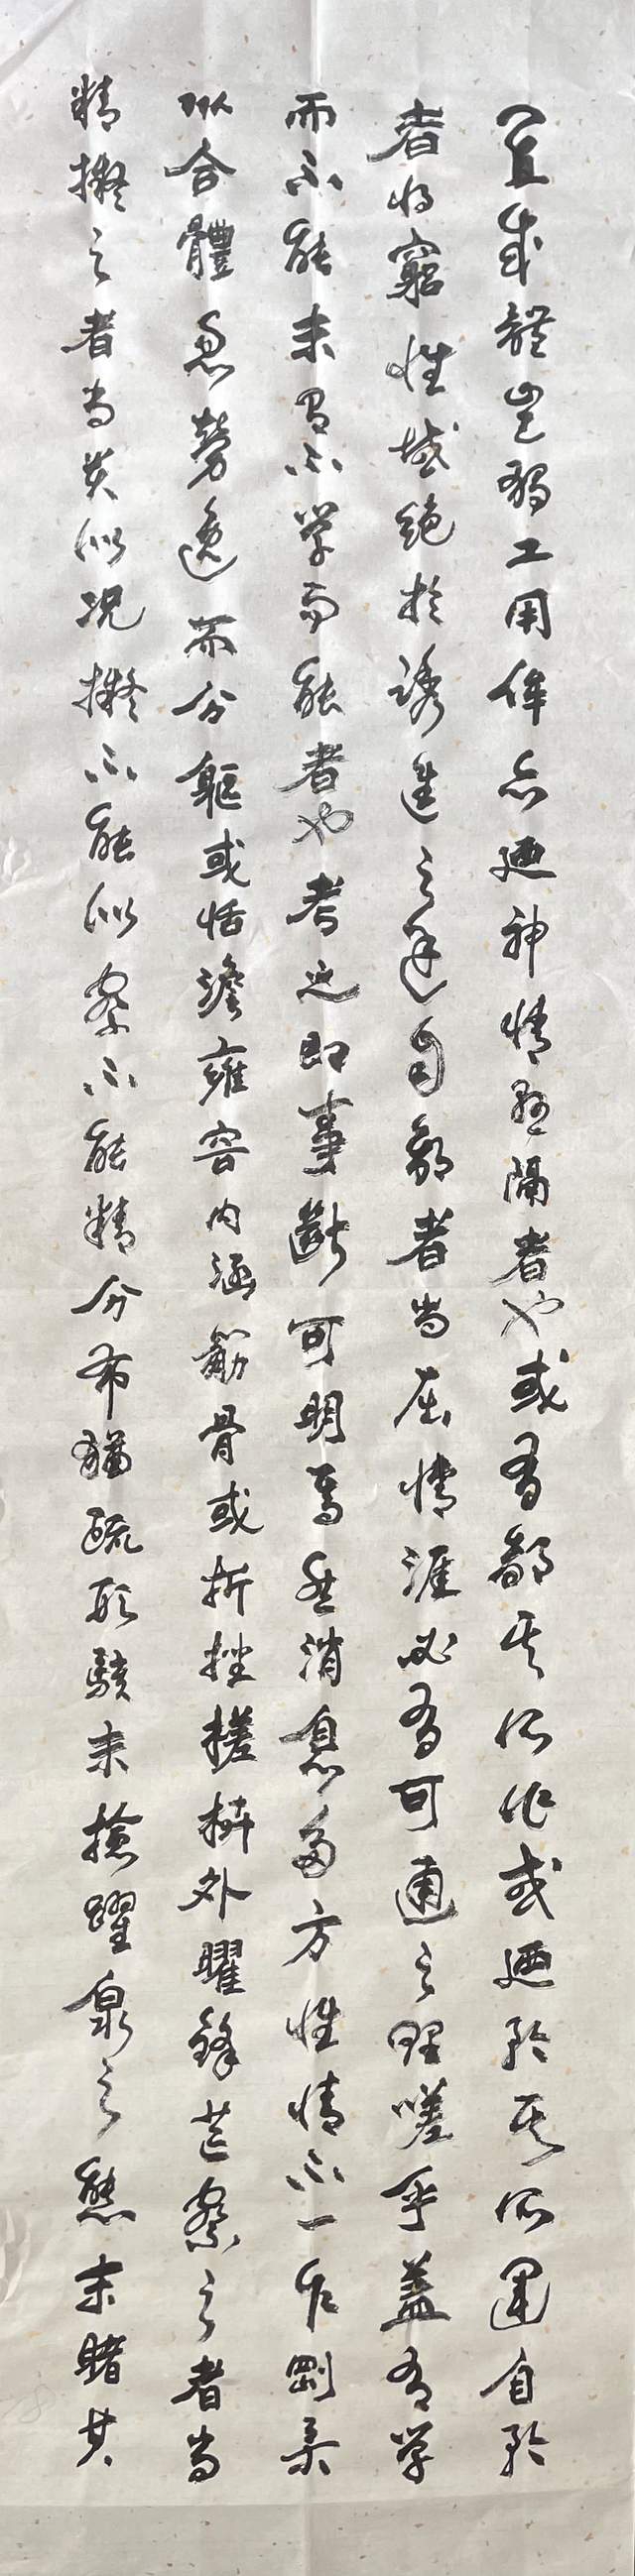 置成體豈獨工用侔亦廼神情懸隔者也或有鄙其所作或廼矜其所運自矜
者將窮性域絕於誘進之途自鄙者尚屈情涯必有可通之理嗟乎蓋有學
而不能未有不學而能者也考之即事斷可明焉然消息多方性情不一乍剛柔
以合體忽勞逸而分軀或恬澹雍容內涵筋骨或折挫槎枿外曜鋒芒察之者尚
精擬之者尚貴似況擬不能似察不能精分布猶疏形骸未檢躍泉之態未睹其